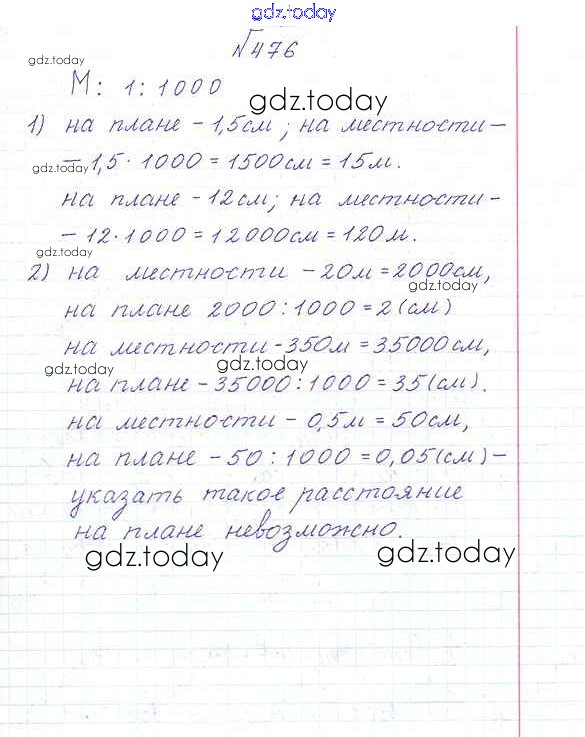 gdz.today
№476
gdz.today
М: 1:1000
gdz.today
1) на плане - 1,5см; на местности -
gdz.today
- 1,5 · 1000 = 1500см = 15м.
на плане - 12см; на местности -
- 12·1000 = 12000см = 120м.
gdz.today
2) на местности - 20м = 2000см,
gdz.today
на плане 2000 : 1000 = 2 (см)
на местности - 350м = 35000см,
gdz.today
gdz.today
на плане - 35000:1000 = 35(см).
на местности - 0,5м = 50см,
на плане - 50 : 1000 = 0,05(см) -
указать такое расстояние
на плане невозможно.
gdz.today
gdz.today